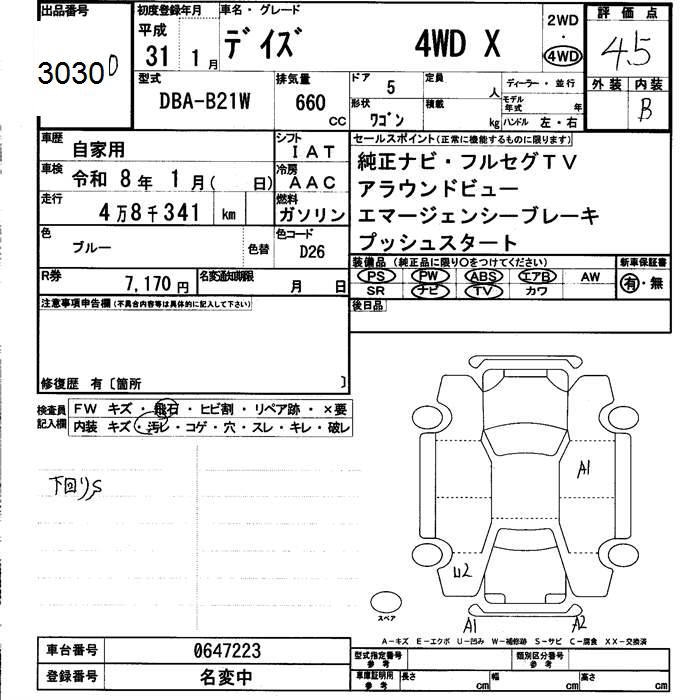 出品番号 初度登録年月 車名・グレード 2WD 評価点
平成 デイズ 4WD X 4WD 4.5
3030 D 31 1月
型式 排気量 ドア 5 定員 人 ディーラー・並行 外装 内装
DBA-B21W 660 cc 形状 ワゴン 積載 kg モデル年式 年 B
ハンドル 左・右
車歴 自家用 シフト IAT セールスポイント(正常に機能するものに限ります)
車検 令和 8年 1月( 日) 冷房 AAC 純正ナビ・フルセグTV
走行 4万8千341 km 燃料 ガソリン アラウンドビュー
エマージェンシーブレーキ
色 ブルー 色替 色コード D26 プッシュスタート
R券 7,170円 名変通知期限 月 日 装備品 (純正品に限り○をつけてください) 新車保証書
PS PW ABS エアB AW 有・無
SR ナビ TV カワ
注意事項申告欄(不具合内容等は具体的に記入して下さい) 後日品
修復歴 有〔箇所 〕
検査員記入欄 FW キズ・飛石・ヒビ割・リペア跡・×要
内装 キズ・汚レ・コゲ・穴・スレ・キレ・破レ
下回りS
A1
U2
スペア A1 A2
A-キズ E-エクボ U-凹み W-補修跡 S-サビ C-腐食 XX-交換済
車台番号 0647223 型式指定番号 参考 類別区分番号 参考
登録番号 名変中 車庫証明用 参考 長さ cm 幅 cm 高さ cm